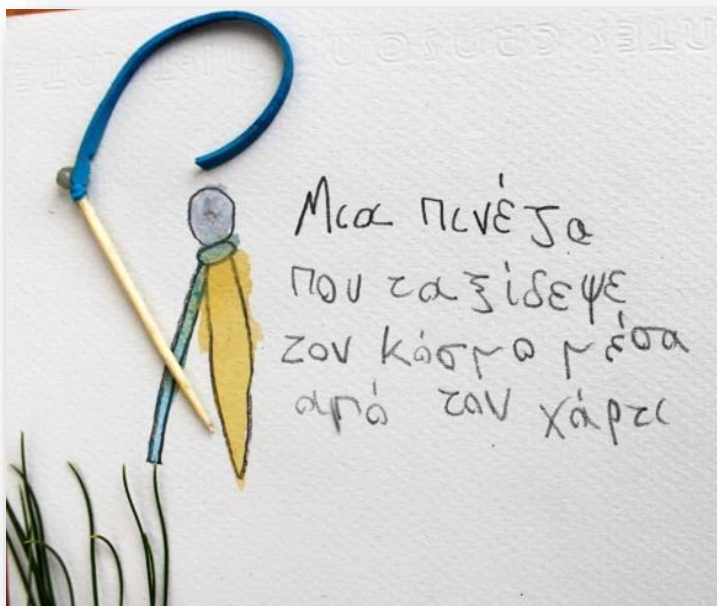 CANSON
Μια πινέζα
που ταξίδεψε
τον κόσμο μέσα
από τον χάρτι